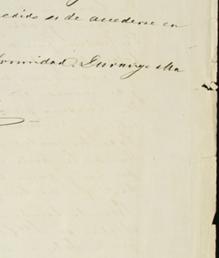 edido es de accederse en
formidad. Durango Ma